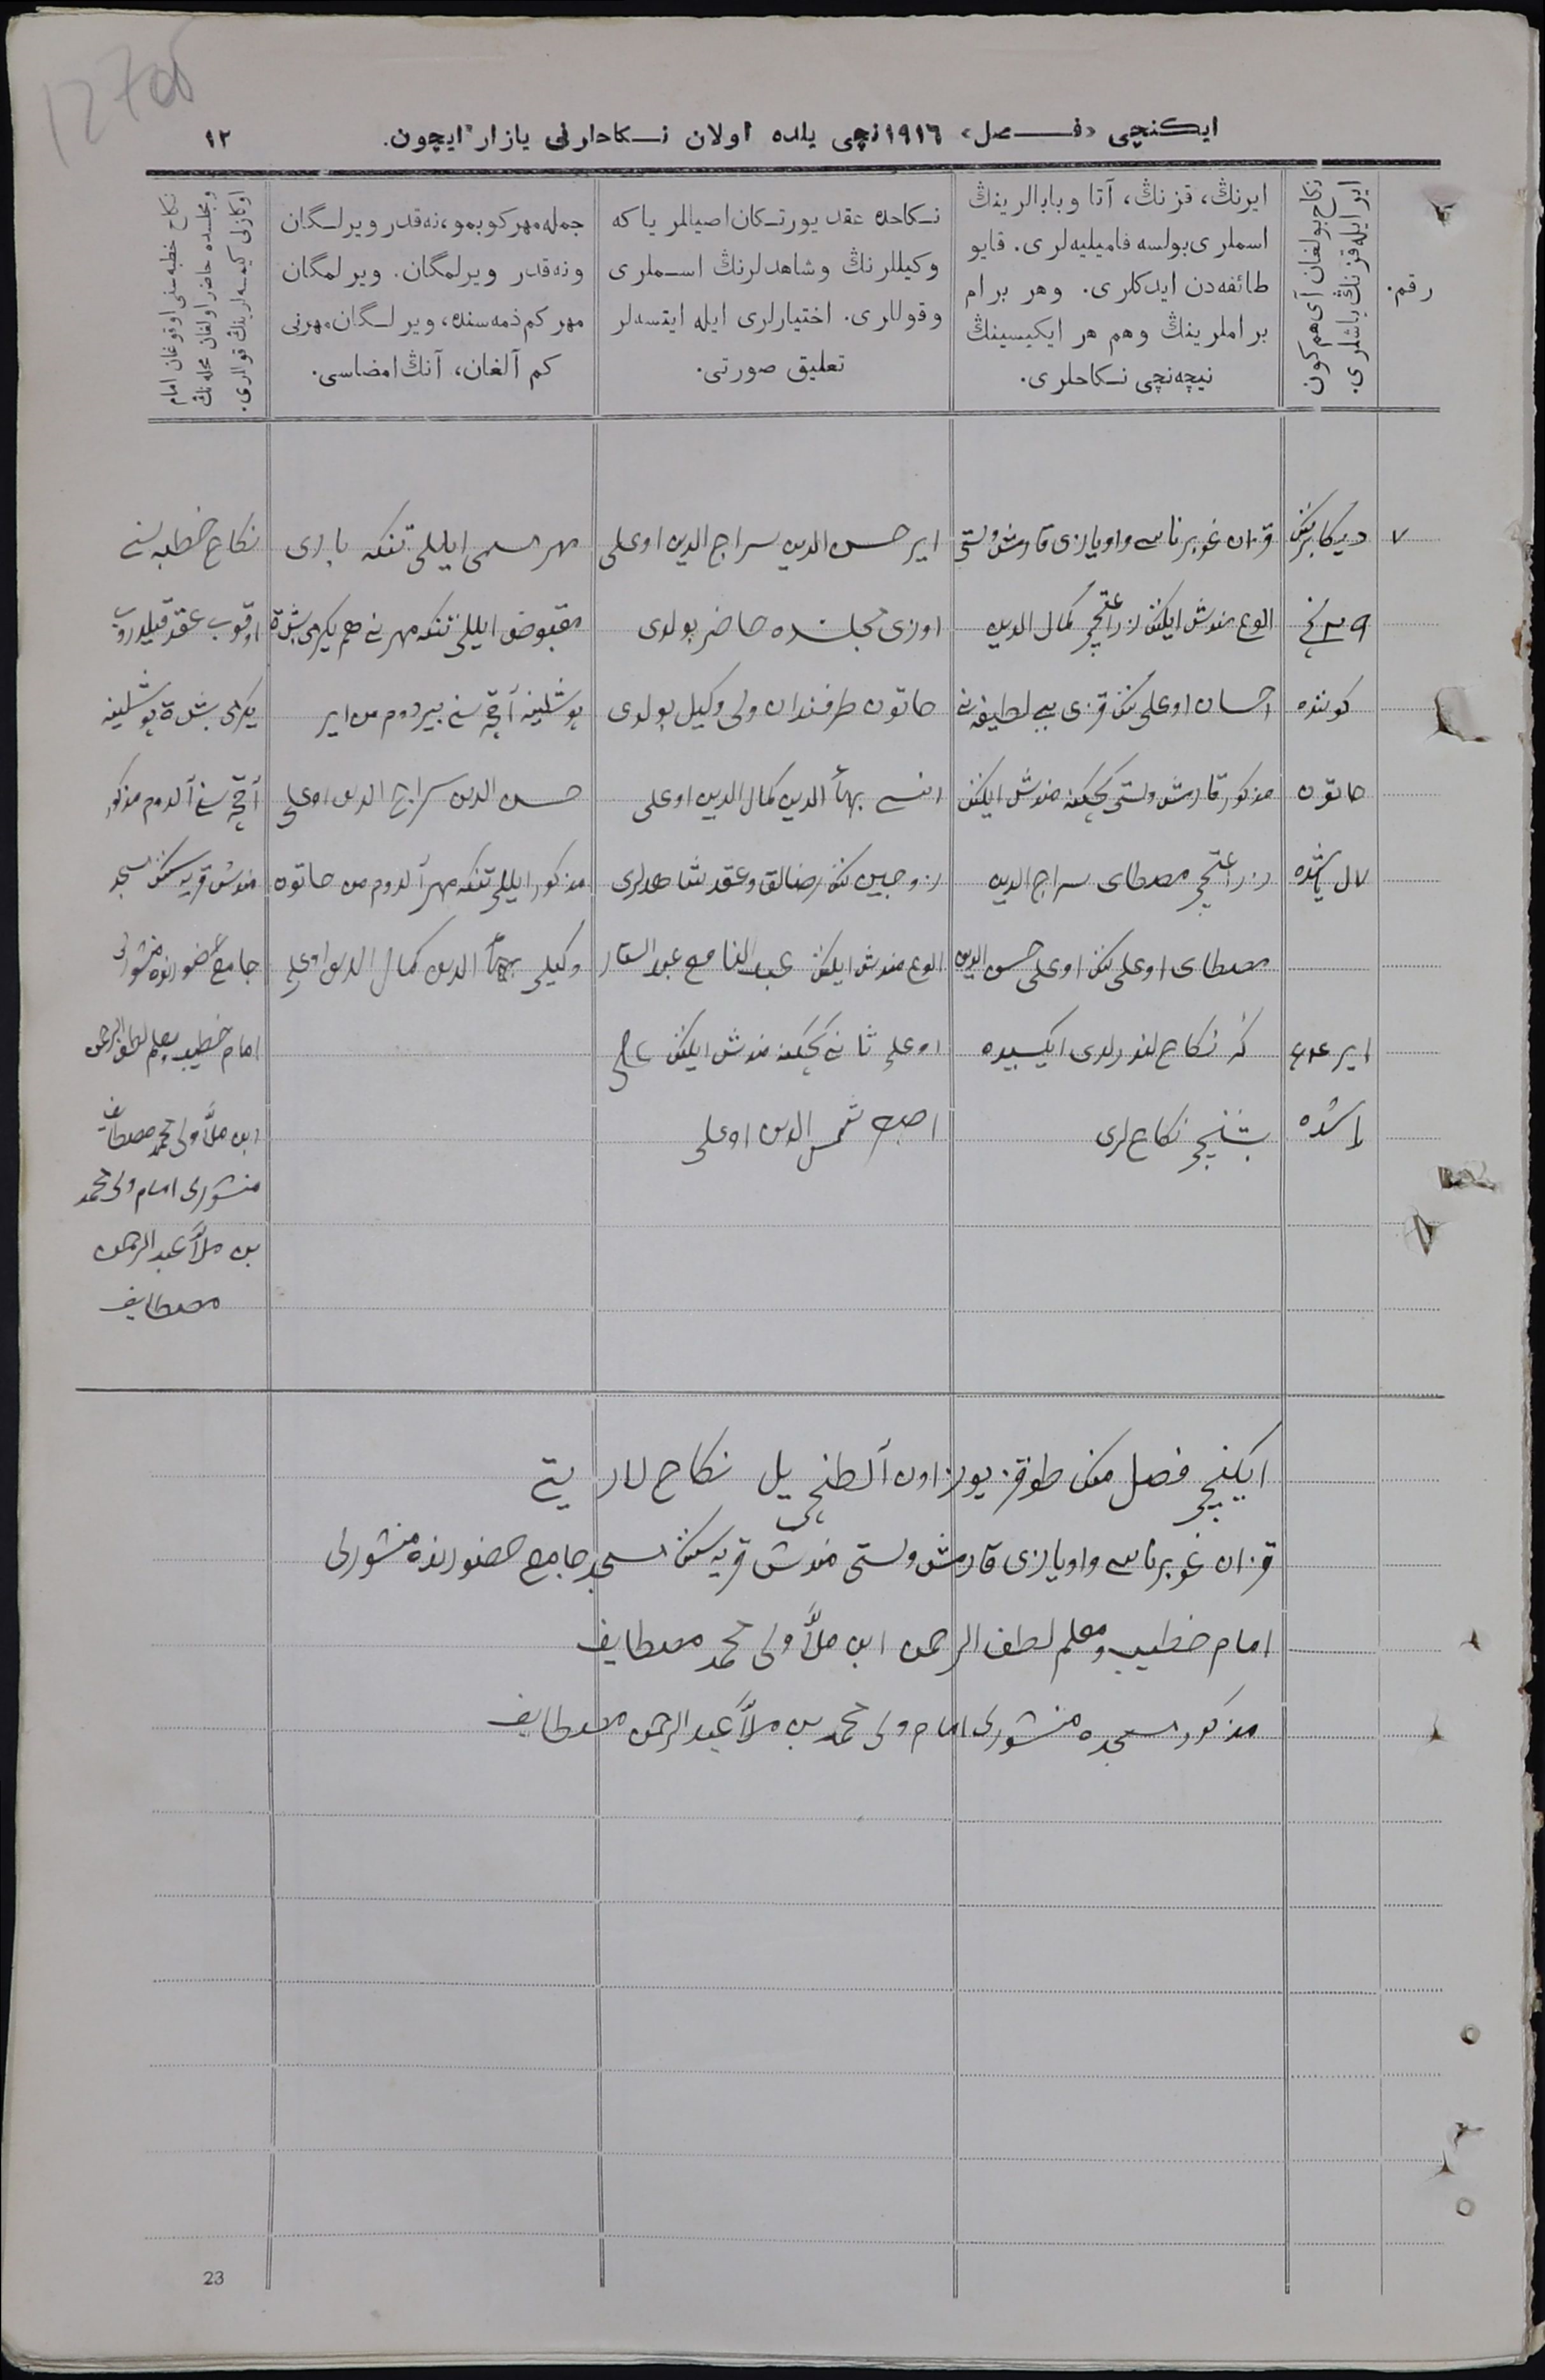 ایکنچی «فصل» ١٩١٦نچی یلده اولان نکاحلرنی یازار ایچون.
١٢
رقم.
نکاح بولغان آی هم کون
ایر ایله قزنڭ یاشلری.
ایرنڭ، قزنڭ، آتا وبابالرینڭ
اسملری بولسه فامیلیه‌لری. قایو
طائفه‌دن ایدکلری. وهر برام
براملرینڭ وهم هر ایکیسینڭ
نیچه‌نچی نکاحلری.
نکاحده عقد یورتکان اصیللر یا که
وکیللرنڭ وشاهدلرنڭ اسملری
وقوللری. اختیارلری ایله ایتسه‌لر
تعلیق صورتی.
جمله مهر کوبمو، نه‌قدر ویرلگان
ونه‌قدر ویرلمگان. ویرلمگان
مهر کم ذمه‌سنده، ویرلگان مهرنی
کم آلغان، آنڭ امضاسی.
نکاح خطبه‌سنی اوقوغان امام
ومجلسده حاضر اولغان محله‌نڭ
اوکازلی کیمسه‌لرینڭ قوللری.
٧
دیکابرنڭ
کوننده
خاتون
یاشنده
قزان غوبرناسی واویازی قادرمش ولستی
الوغ مندش ایلنڭ کمال الدین
احسان اوغلی نڭ قزی بیبی لطیفه نی
مذکور قادرمش ولستی کچکنه مندش ایلنڭ
مصطای سراج الدین
مصطای اوغلی نڭ اوغلی حسن الدین
نکاح لندرلدی ایکسیده
نکاح لری
ایر حسن الدین سراج الدین اوغلی
اوزی مجلسده حاضر بولدی
خاتون طرفندان ولی وکیل بولدی
بهاء الدین کمال الدین اوغلی
زوجین نڭ رضالق وعقد شاهدلری
الوغ مندش ایلنڭ عبد السار
اوغلی ثانی کچکنه مندش ایلنڭ
شمس الدین اوغلی
مهر ایللی تنکه باری
مقبوض ایللی تنکه مهر نی هم یکرمی بش
آقچه نی بیردوم من ایر
حسن الدین سراج الدین اوغلی
مذکور ایللی تنکه مهر آلدوم من خاتون
وکیلی بهاء الدین کمال الدین اوغلی
نکاح خطبه سنی
اوقوب عقد قیلدروب
یکرمی بش
آقچه نی آلدوم مذکور
مندش قریه سنڭ مسجد
جامع حضورنده منشورلی
امام خطیب معلم لطف الرحمن
ابن ملا ولی محمد مصطایف
منشورلی امام ولی محمد
بن ملا عبد الرحمن
مصطایف
ایکینچی فصل منڭ طوقز یوز اون آلطنچی یل نکاح لار یتی
قزان غوبرناسی واویازی قادرمش ولستی مندش قریه سنڭ مسجد جامع حضورنده منشورلی
امام خطیب ومعلم لطف الرحمن ابن ملا ولی محمد مصطایف
مذکور مسجده منشورلی امام ولی محمد بن ملا عبد الرحمن مصطایف
23